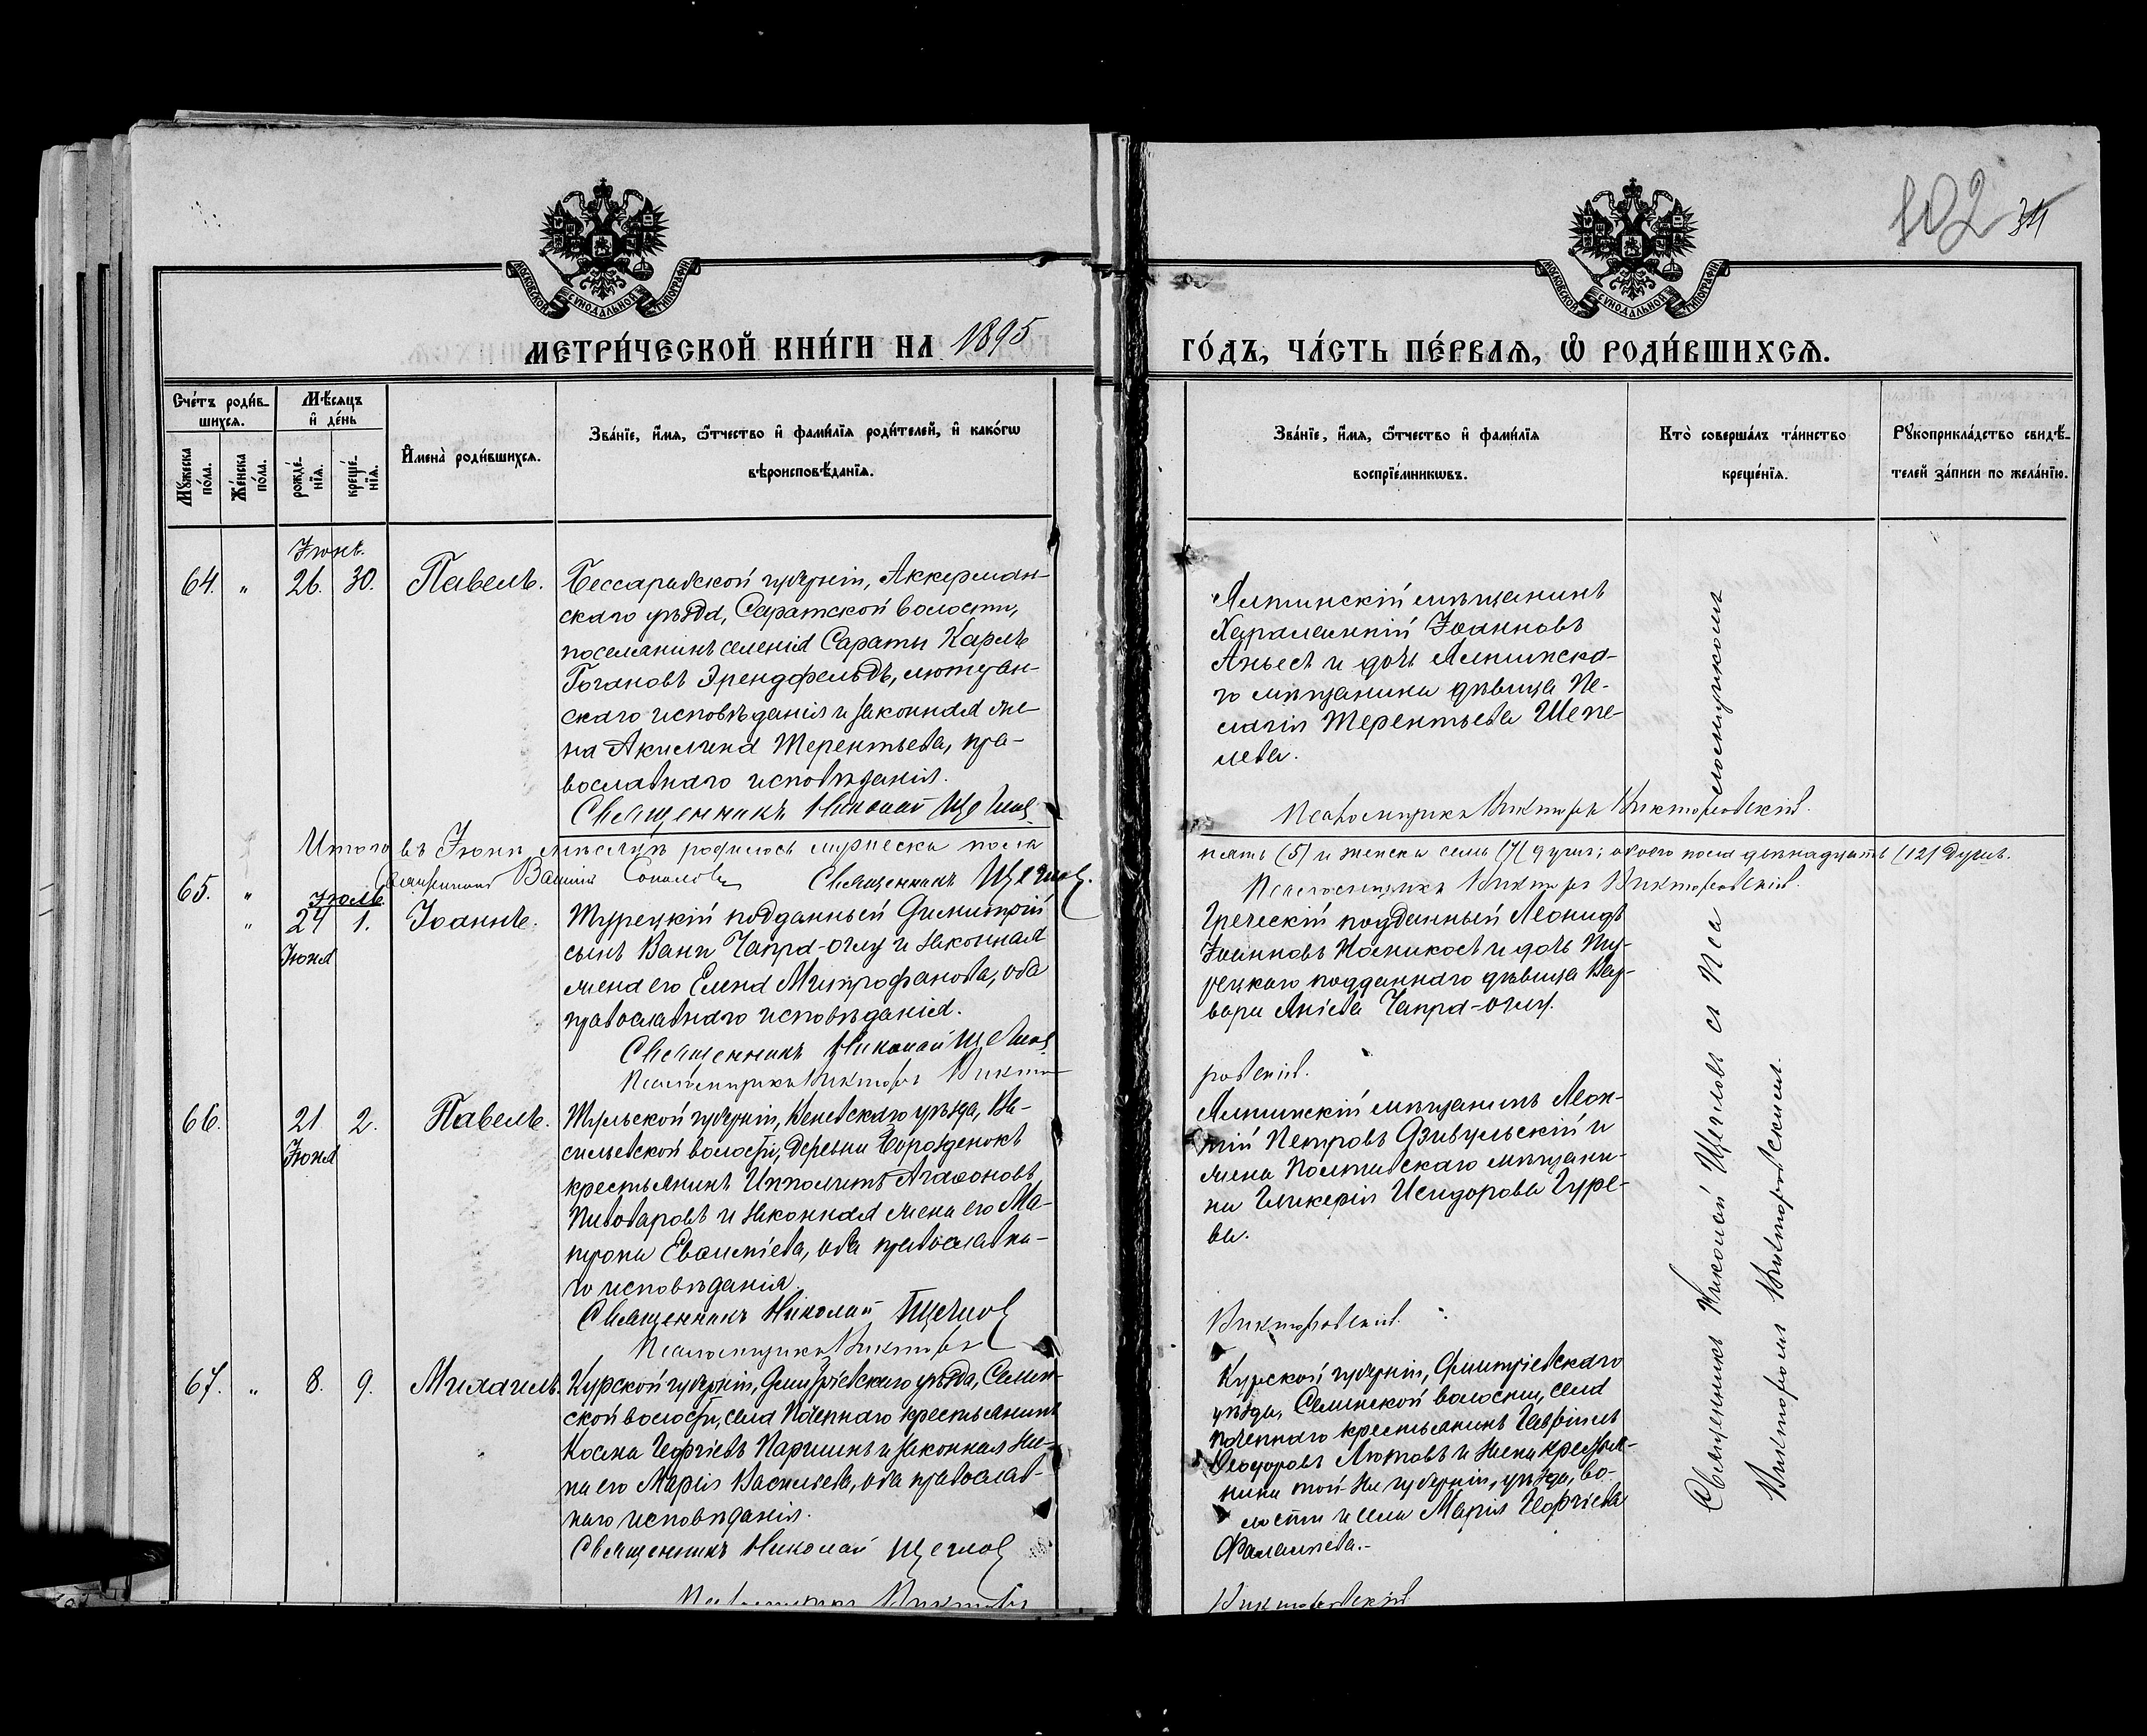 102 34
МОСКОВСКОЙ СѴНОДАЛЬНОЙ ТИПОГРАФІИ
МОСКОВСКОЙ СѴНОДАЛЬНОЙ ТИПОГРАФІИ
МЕТРИ́ЧЕСКОЙ КНИ́ГИ НА 1895
ГО́ДЪ, ЧА́СТЬ ПЕ́РВАЯ, Ѡ РОДИ́ВШИХСЯ.
Сче́тъ роди́в-
шихся.
Мѣ́сяцъ
и де́нь
Мꙋ́жеска по́ла.
Же́нска по́ла.
рожде́-
нїя.
креще́-
нїя.
И҆мена̀ роди́вшихся.
Зва́нїе, и҆́мя, ѻ҆́тчество и҆ фами́лїя роди́телей, и҆ како́гѡ
вѣроисповѣ́данїя.
Зва́нїе, и҆́мя, ѻ҆́тчество и҆ фами́лїя
воспрїе́мникѡвъ.
Кто̀ соверша́лъ та́инство
креще́нїя.
Рꙋкоприкла́дство свидѣ́-
телей за́писи по жела́нїю.
Іюнь.
64. " 26. 30. Павелъ.
Бессарабской губерніи, Аккерман-
скаго уѣзда, Саратской волости,
поселянинъ селенія Сараты Карлъ
Гогановъ Эрендфельдъ, лютеран-
скаго исповѣданія и законная же-
на Акилина Терентьева, пра-
вославнаго исповѣданія.
Священникъ Николай Щегловъ
Ялтинскій мѣщанинъ
Харалампій Іоанновъ
Аньесъ и дочь Ялтинска-
го мѣщанина дѣвица Пе-
лагія Терентьева Шепе-
лева.
Псаломщикъ Викторъ Викторовскій.
Итого въ Іюнѣ мѣсяцѣ родилось мужеска пола
пять (5) и женска семь (7) душъ; обоего пола двѣнадцать (12) душъ.
Священникъ Щегловъ.
Псаломщикъ Викторъ Викторовскій.
Іюль.
65. " 24 1. Іоаннъ.
Іюня
Турецкій подданный Димитрій
сынъ Вани Чапра-оглу и законная
жена его Елена Митрофанова, оба
православнаго исповѣданія.
Священникъ Николай Щегловъ
Псаломщикъ Викторъ Викто-
Греческій подданный Леонидъ
Іоанновъ Колмикосъ и дочь Ту-
рецкаго подданнаго дѣвица Вар-
вара Иліева Чапра-оглу.
ровскій.
66. 21 2. Павелъ.
Іюня
Тульской губерніи, Веневскаго уѣзда, Ва-
сильевской волости, деревни Борозденокъ
крестьянинъ Ипполитъ Агаѳоновъ
Пивоваровъ и законная жена его Ма-
трона Евѳиміева, оба православна-
го исповѣданія.
Священникъ Николай Щегловъ
Псаломщикъ Викторъ
Ялтинскій мѣщанинъ Леон-
тій Петровъ Дзивульскій и
жена Полтавскаго мѣщани-
на Гликерія Исидорова Гуре-
ва.
Викторовскій.
67. " 8. 9. Михаилъ.
Курской губерніи, Дмитріевскаго уѣзда, Селин-
ской волости, села Почепнаго крестьянинъ
Косма Георгіевъ Паршинъ и законная же-
на его Марія Васильева, оба православ-
наго исповѣданія.
Священникъ Николай Щегловъ
Псаломщикъ Викторъ
Курской губерніи, Дмитріевскаго
уѣзда, Селинской волости, села
Почепнаго крестьянинъ Гавріилъ
Ѳеодоровъ Лютовъ и жена крестья-
нина той же губерніи, уѣзда, во-
лости и села Марія Георгіева
Викторовскій
Священникъ Николай Щегловъ съ Пса
ломщикомъ
Викторомъ Викторовскимъ.